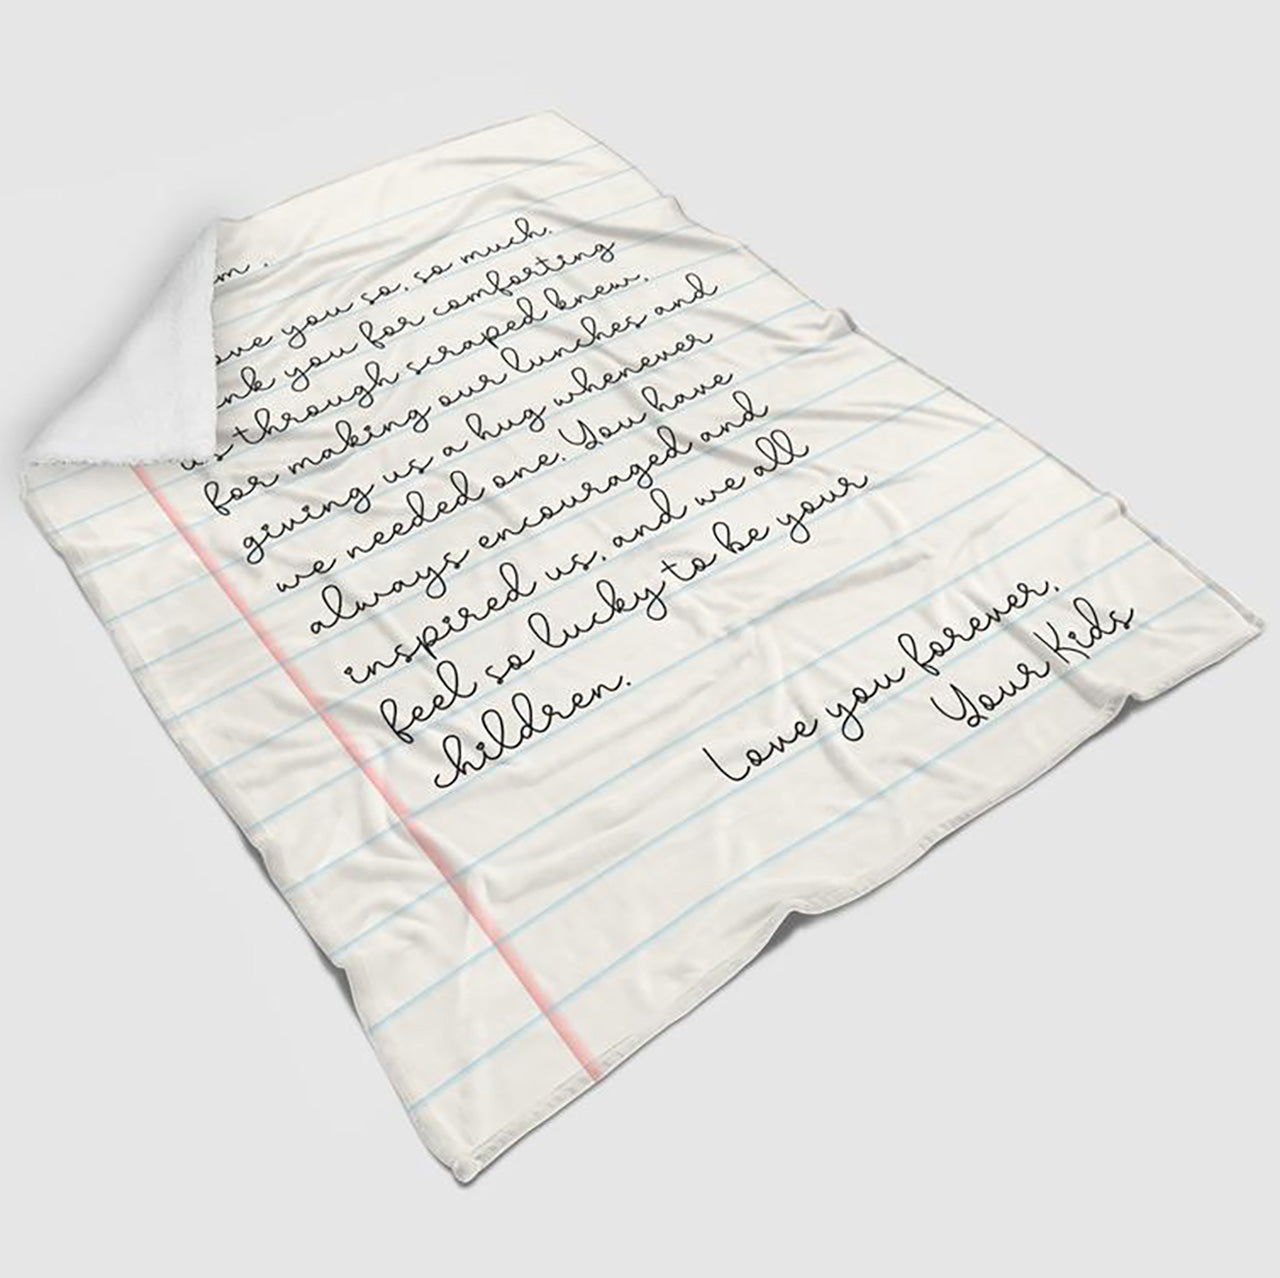 m,
ove you so, so much.
nk you for comforting
us through scraped knew,
for making our lunches and
giving us a hug whenever
we needed one. You have
always encouraged and
inspired us, and we all
feel so lucky to be your
children.
Love you forever,
Your Kids